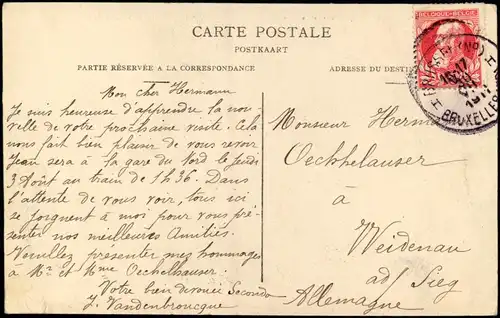 CARTE POSTALE
POSTKAART
PARTIE RÉSERVÉE A LA CORRESPONDANCE
ADRESSE DU DESTIN
BELGIQUE-BELGIË
BRUXELLES
Mon cher Hermann
Je suis heureuse d'apprendre la nou-
velle de votre prochaine visite. Cela
nous fait bien plaisir de vous revoir
Jean sera à la gare du Nord le jeudi
3 Août au train de 1h36. Dans
l'attente de vous voir, tous ici
se joignent à moi pour vous pré-
senter nos meilleures Amitiés.
Veuillez présenter mes hommages
à Mr et Mme Oechelhauser.
Votre bien dévouée Seconde
J. Vandenbroucque
Monsieur Herm
Oechhelauser
à
Weidenau
ad/ Sieg
Allemagne